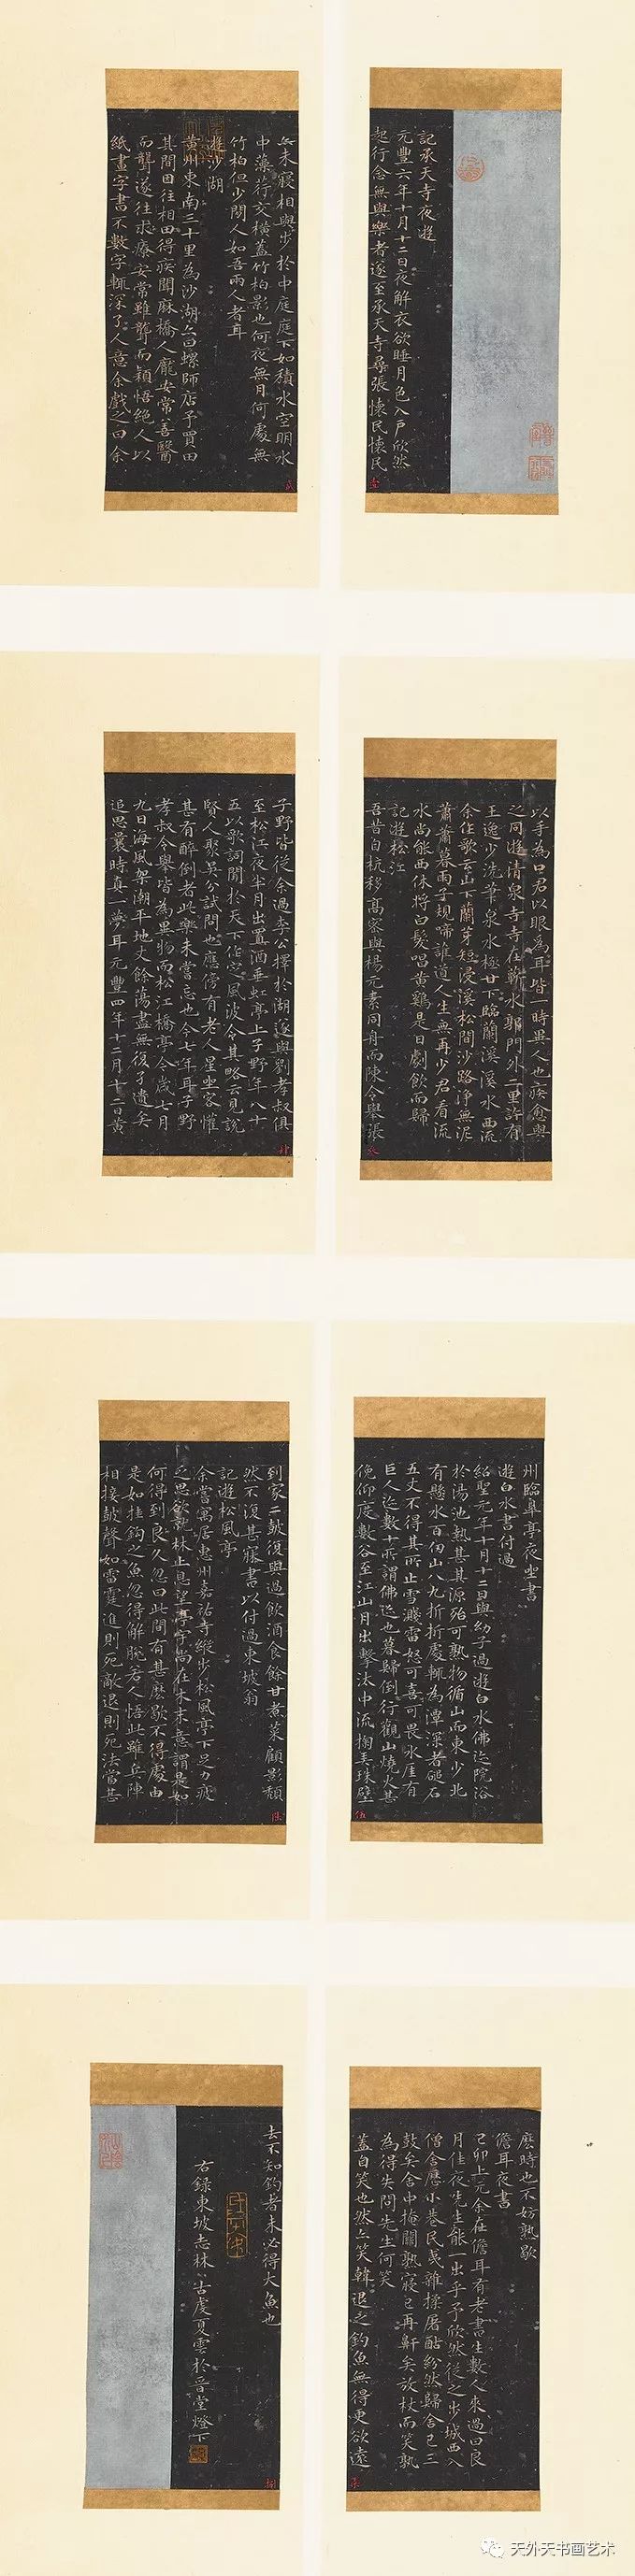 記承天寺夜遊
元豐六年十月十二日夜解衣欲睡月色入戶欣然
起行念無與樂者遂至承天寺尋張懷民懷民
壹
亦未寢相與步於中庭庭下如積水空明水
中藻荇交橫蓋竹柏影也何夜無月何處無
竹柏但少閒人如吾兩人者耳
遊沙湖
黃州東南三十里為沙湖亦曰螺師店予買田
其間因往相田得疾聞麻橋人龐安常善醫
而聾遂往求療安常雖聾而穎悟絕人以
紙畫字書不數字輒深了人意余戲之曰余
貳
以手為口君以眼為耳皆一時異人也疾愈與
之同遊清泉寺寺在蘄水郭門外二里許有
王逸少洗筆泉水極甘下臨蘭溪溪水西流
余作歌云山下蘭芽短浸溪松間沙路淨無泥
蕭蕭暮雨子規啼誰道人生無再少君看流
水尚能西休將白髮唱黃鷄是日劇飲而歸
記遊松江
吾昔自杭移高密與楊元素同舟而陳令舉張
叁
子野皆從余過李公擇於湖遂與劉孝叔俱
至松江夜半月出置酒垂虹亭上子野年八十
五以歌詞聞於天下作定風波令其略云見說
賢人聚吳分試問也應傍有老人星坐客懽
甚有醉倒者此樂未嘗忘也今七年耳子野
孝叔令舉皆為異物而松江橋亭今歲七月
九日海風架潮平地丈餘蕩盡無復孑遺矣
追思曩時真一夢耳元豐四年十二月十二日黃
肆
州臨皋亭夜坐書
遊白水書付過
紹聖元年十月十二日與幼子過遊白水佛迹院浴
於湯池熱甚其源殆可熟物循山而東少北
有懸水百仞山八九折折處輒為潭深者磓石
五丈不得其所止雪濺雷怒可喜可畏水崖有
巨人迹數十所謂佛迹也暮歸倒行觀山燒火甚
俛仰度數谷至江山月出擊汰中流掬弄珠璧
伍
到家二鼓復與過飲酒食餘甘煮菜顧影頹
然不復甚寐書以付過東坡翁
記遊松風亭
余嘗寓居惠州嘉祐寺縱步松風亭下足力疲
乏思欲就林止息望亭宇尚在木末意謂是如
何得到良久忽曰此間有甚麼歇不得處由
是如挂鉤之魚忽得解脫若人悟此雖兵陣
相接鼓聲如雷霆進則死敵退則死法當甚
陸
麼時也不妨熟歇
儋耳夜書
己卯上元余在儋耳有老書生數人來過曰良
月佳夜先生能一出乎予欣然從之步城西入
僧舍歷小巷民夷雜揉屠酤紛然歸舍已三
鼓矣舍中掩關熟寢已再鼾矣放杖而笑孰
為得失問先生何笑
蓋自笑也然亦笑韓退之釣魚無得更欲遠
柒
去不知釣者未必得大魚也
右錄東坡志林古虞夏雲於晉堂燈下
捌
天外天书画艺术